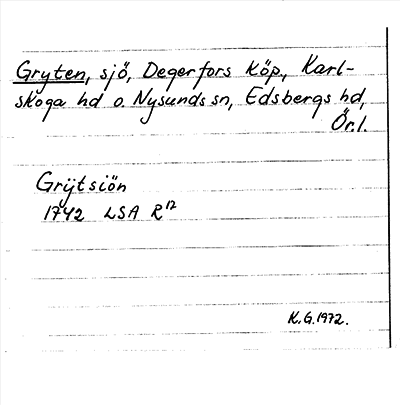 Gryten, sjö, Degerfors köp., Karl-
skoga hd o. Nysunds sn, Edsbergs hd,
Ör.l.
Grÿtsiön
1742 LSA R17
K.G.1972.